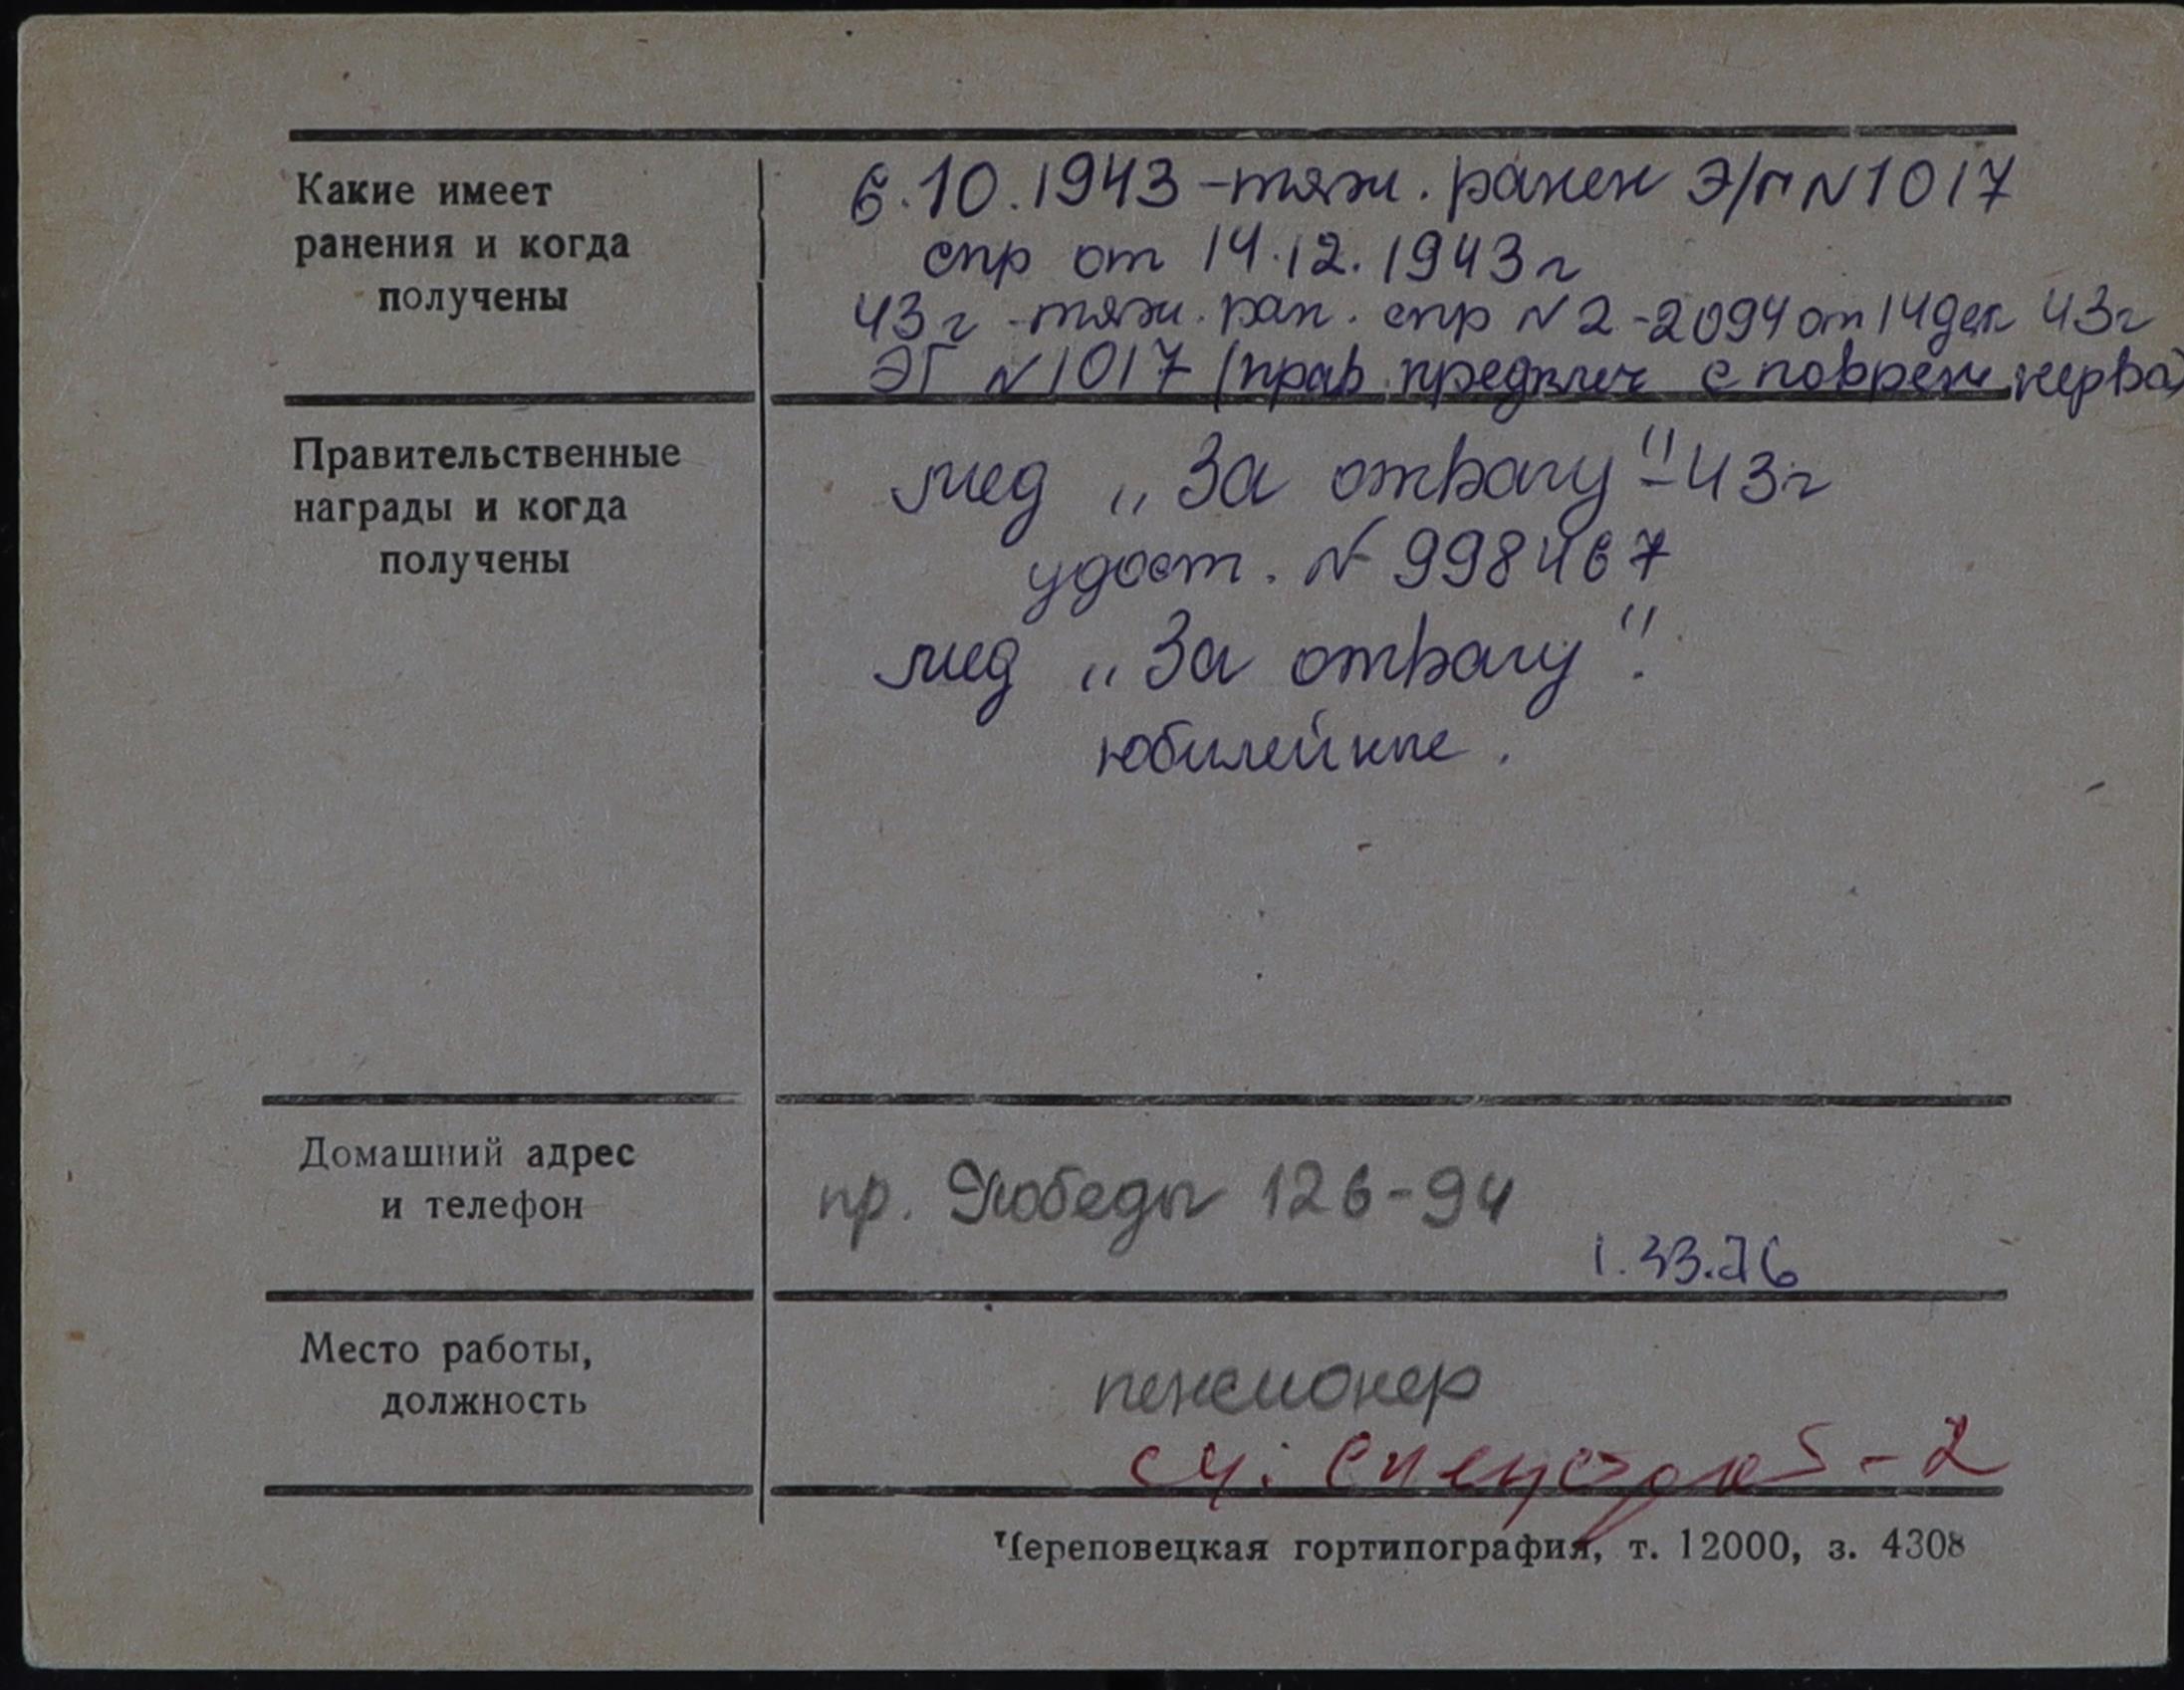 Какие имеет
ранения и когда
получены
6.10.1943 - тяж. ранен Э/г N 1017
спр от 14.12.1943 г
43 г - тяж. ран. спр N 2-2094 от 14 дек 43 г
ЭГ N 1017 (прав. предплеч с повреж. нерва)
Правительственные
награды и когда
получены
мед „За отвагу" - 43 г
удост. N 998467
мед „За отвагу".
юбилейные.
Домашний адрес
и телефон
пр. Победы 126-94
1.33.76
Место работы,
должность
пенсионер
сч: Спецстрой - 2
Череповецкая гортипография, т. 12000, з. 4308